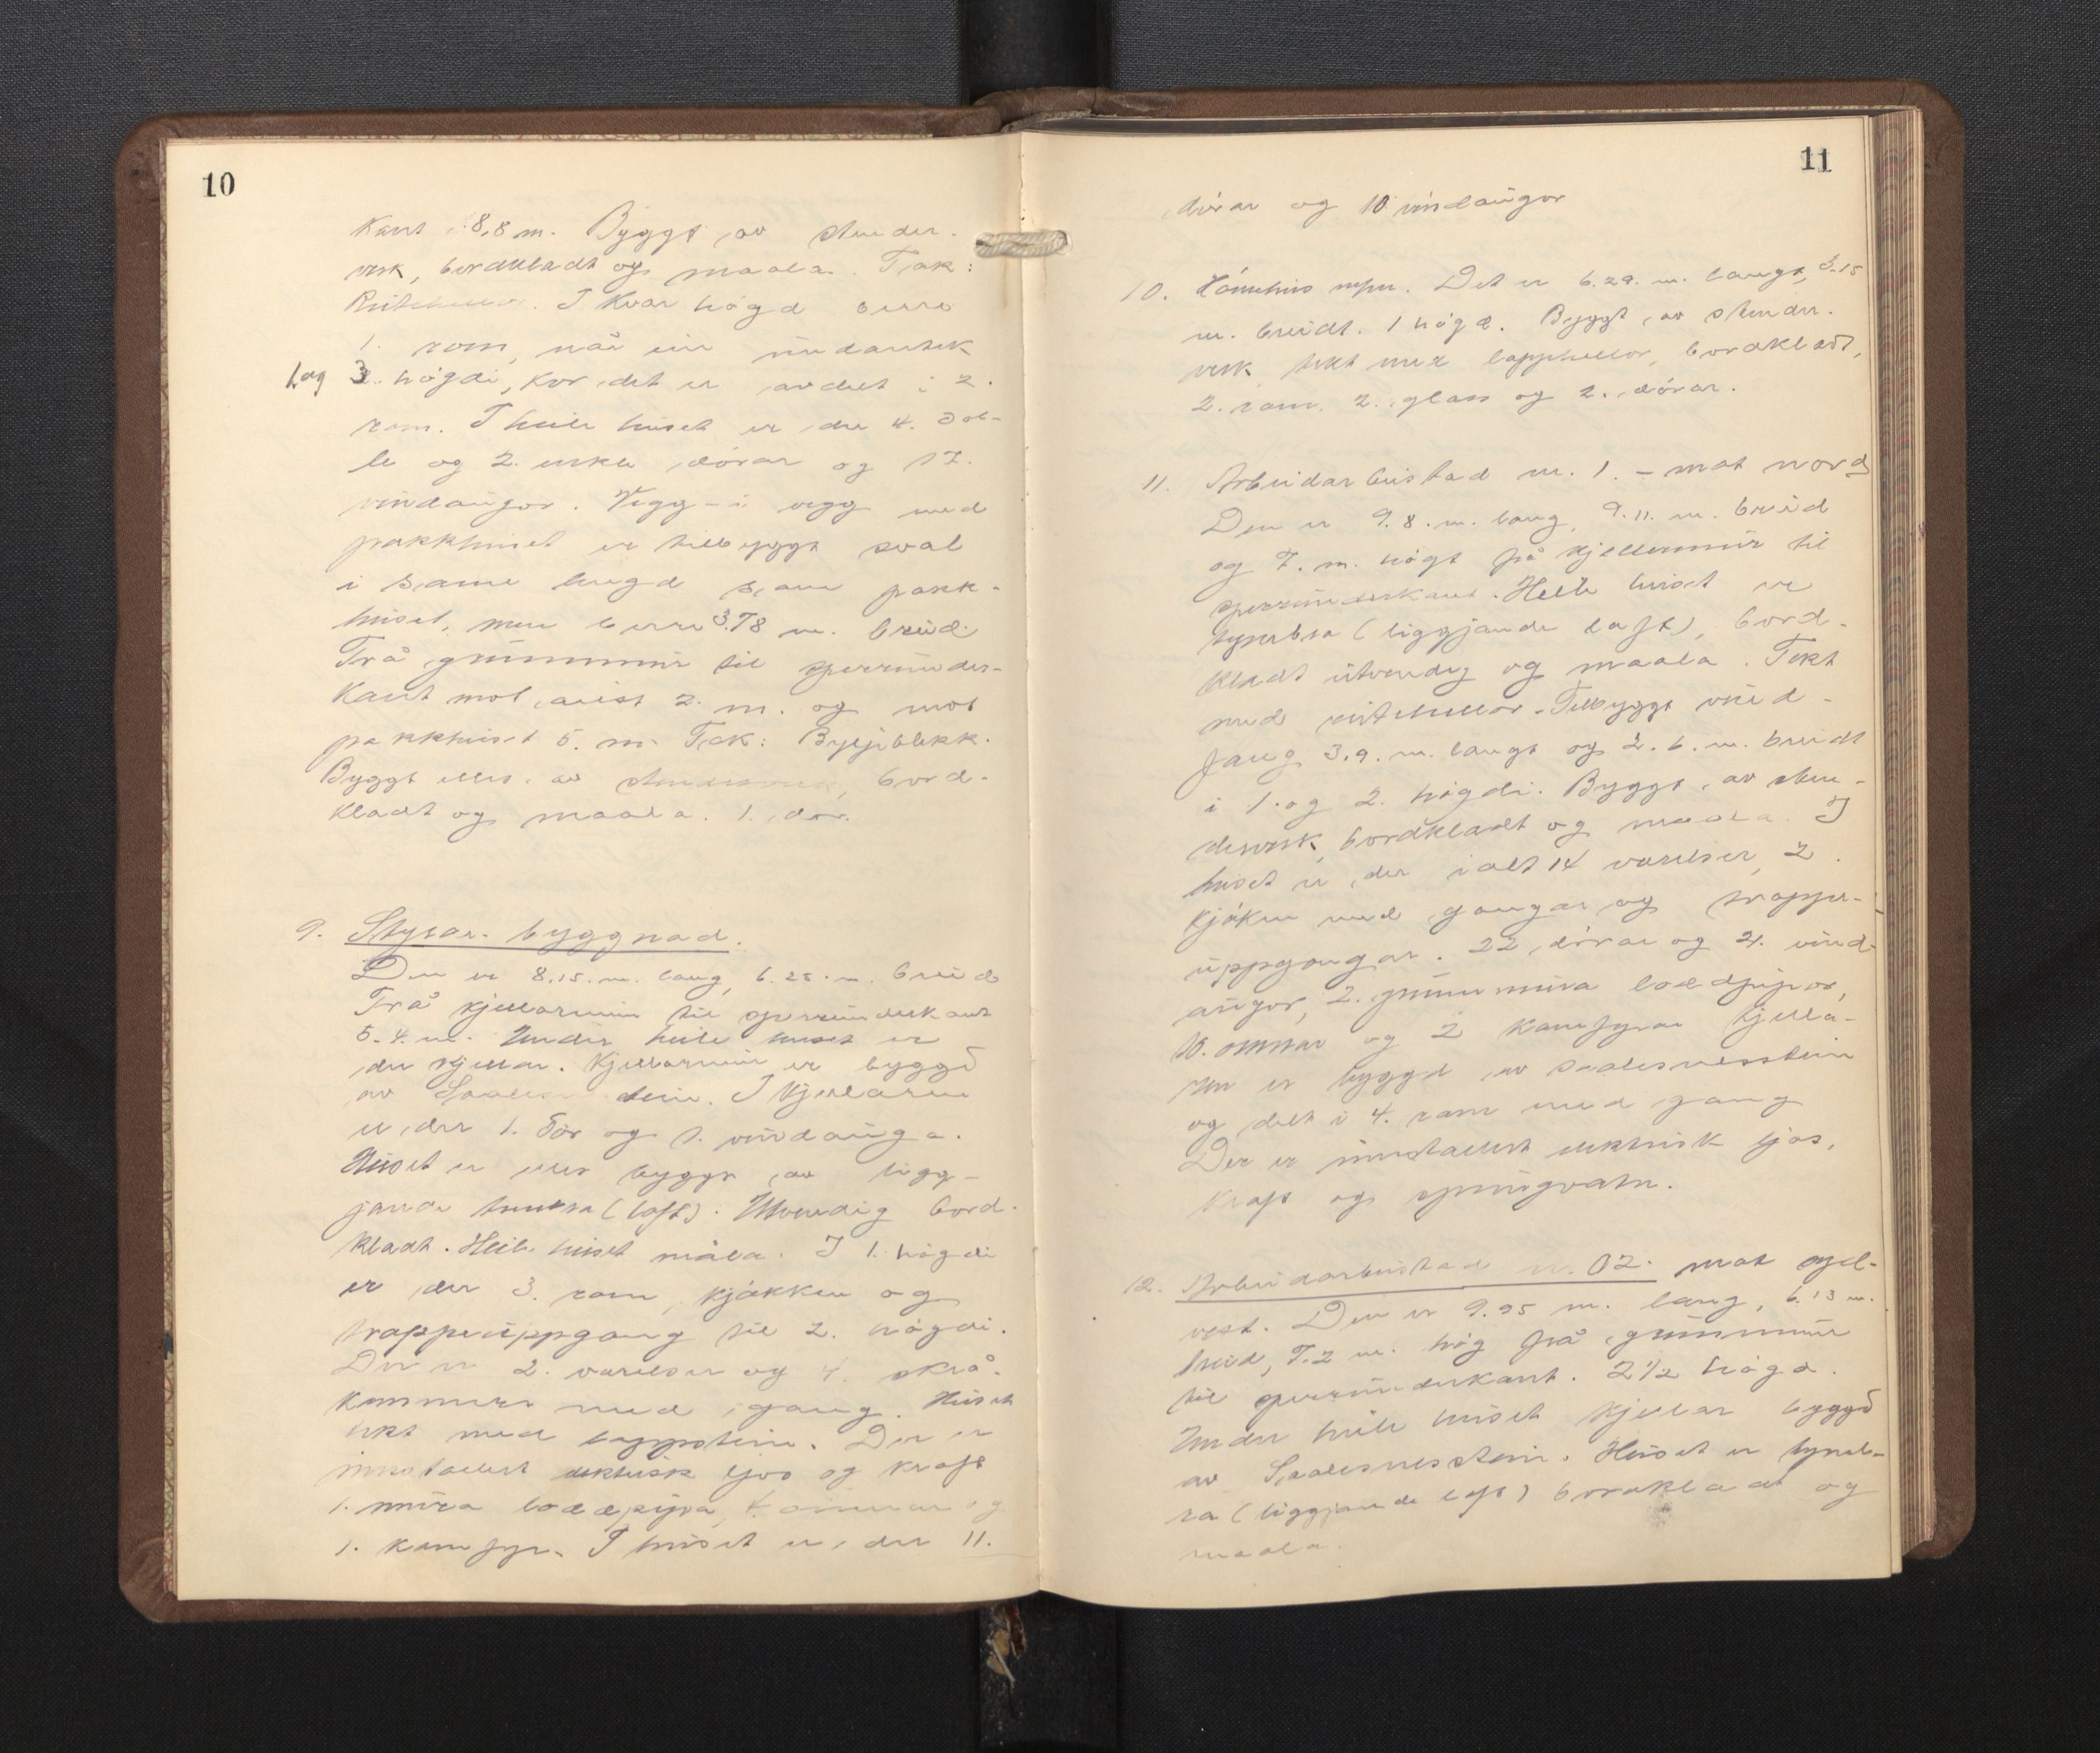 10
kant 8,8 m. Byggt av stender-
verk, bordkladt og maala. Tak:
Ruteheller. I kvar högd berre
1. rom, når ein undantek
1. og 3. högdi, kor det er avdelt i 2.
rom. I heile huset er der 4. dob-
le og 2. enkle dörar og 17.
vindaugor. Vegg-i vegg med
pakkhuset er tilbyggt sval
i same lengd som pakk-
huset, men berre 3.78 m. breid.
Frå grunnmur til sperrunder-
kant mot aust 2. m. og mot
pakkhuset 5. m. Tak: Bylgjeblekk.
Byggt elles av stenderverk, bord-
kladt og maala. 1. dör.
9. Styrar-byggnad.
Den er 8.15. m. lang, 6.25. m. breid
Frå kjellarmur til sperrunderkant
5.4. m. Under heile huset er
der kjellar. Kjellarmur er byggd
av stein. I kjellaren
er der 1. dör og 1. vindauga.
Huset er elles byggt av ligg-
jande tumra (laft). Utvendig bord-
kladt. Heile huset måla. I 1. högdi
er der 3. rom, kjökken og
trappeuppgang til 2. högdi.
Der er 2. varelser og 4. skrå-
kammers med gang. Huset
tekt med lappstein. Der er
innstallert elektrisk ljos og kraft
1. mura loddpipa, 4. omnar og
1. komfyr. I huset er der 11.
11
dörar og 10 vindaugor
10. Det er 6.29. m. langt, 3.15
m. breidt. 1 högd. Byggt av stender-
verk, tekt med lappheller, bordkladt,
2. rom, 2. glass og 2. dörar.
11. Arbeidarbustad nr. 1. - mot nord
Den er 9.8. m. lang, 9.11. m. breid
og 7. m. högt frå kjellarmur til
sperrunderkant. Heile huset er
(liggjande laft), bord-
kladt utvendig og maala. Tekt
med ruteheller. Tilbyggt vind-
fang 3.9. m. langt og 2.6. m. breidt
i 1. og 2. högdi. Byggt av sten-
derverk, bordkladt og maala. I
huset er der i alt 14 varelser, 2.
kjöken med gangar og trappe-
uppgangar. 22 dörar og 21. vind-
augor, 2. grunnmura loddpipor,
10. omnar og 2 komfyrar Kjella-
ren er byggd av Saalesnesstein
og delt i 4. rom med gang
Der er innstallert elektrisk ljos,
kraft og springvatn.
12. Arbeidarbustad nr. 02. mot syd-
vest. Den er 9.95 m. lang, 6.13 m.
breid, 7.2 m. hög frå grunnmur
til sperrunderkant. 2 1/2 högd.
Under heile huset kjellar byggd
av Saalesnesstein. Huset er tymb-
ra (liggjande laft) bordkladt og
maala.